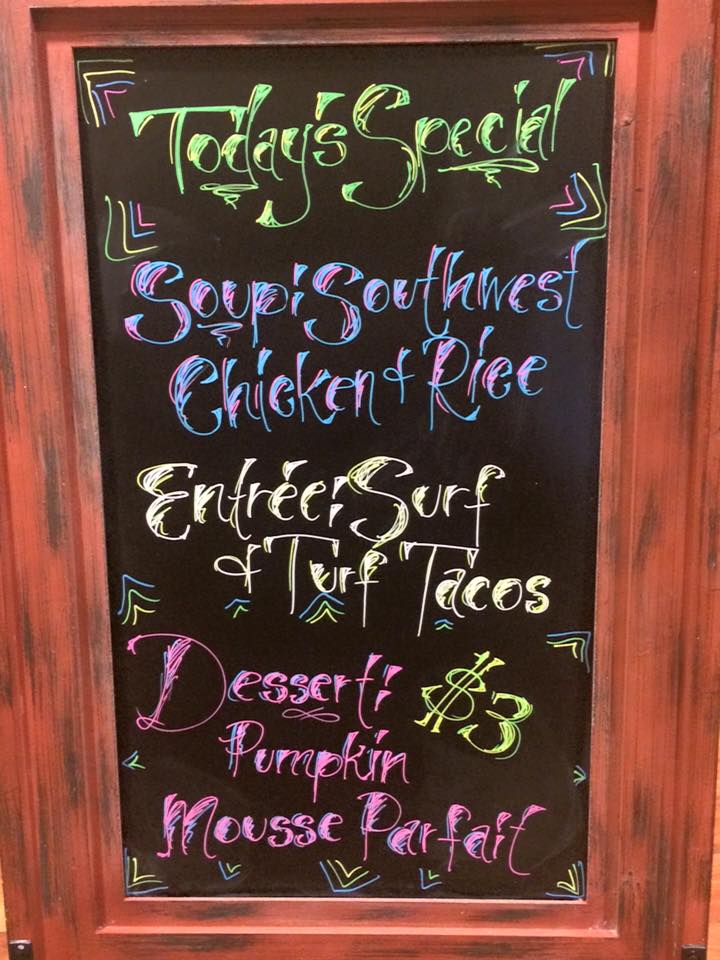 Today's Special
Soup: Southwest
Chicken & Rice
Entrée: Surf
& Turf Tacos
Dessert: $3
Pumpkin
Mousse Parfait